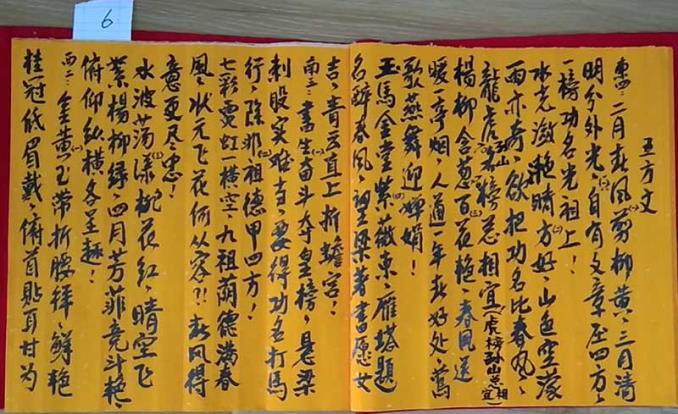 6
五方文
東四：二月春风剪柳黄，三月清
明分外光，自有文章压四方，
一榜功名光祖上！
水光潋滟晴方好，山色空濛
雨亦奇，欲把功名比春风，
龍虎榜总相宜（虎榜孙山总相宜）
楊柳含葱百花艳，春风送
暖一亭烟，人道一年春好处，莺
歌燕舞迎婵娟！
玉馬金堂紫薇東，雁塔題
名醉春风，望梁書愿女
吉，青云直上折蟾宫：
南三：書生奋斗夺皇榜，悬梁
刺股实难当，要得功名打馬
行，除非祖德甲四方！
七彩霓虹一横空，九祖荫德满春
風，状元飞花何从容？！春风得
意更尽忠！
水波荡漾桃花红，晴空飞
絮楊柳绿，四月芳菲竞斗艳，
俯仰纵横各呈趣！
西二：金黄玉带折腰祥，鲜艳
桂冠低眉戴，俯首贴耳甘为